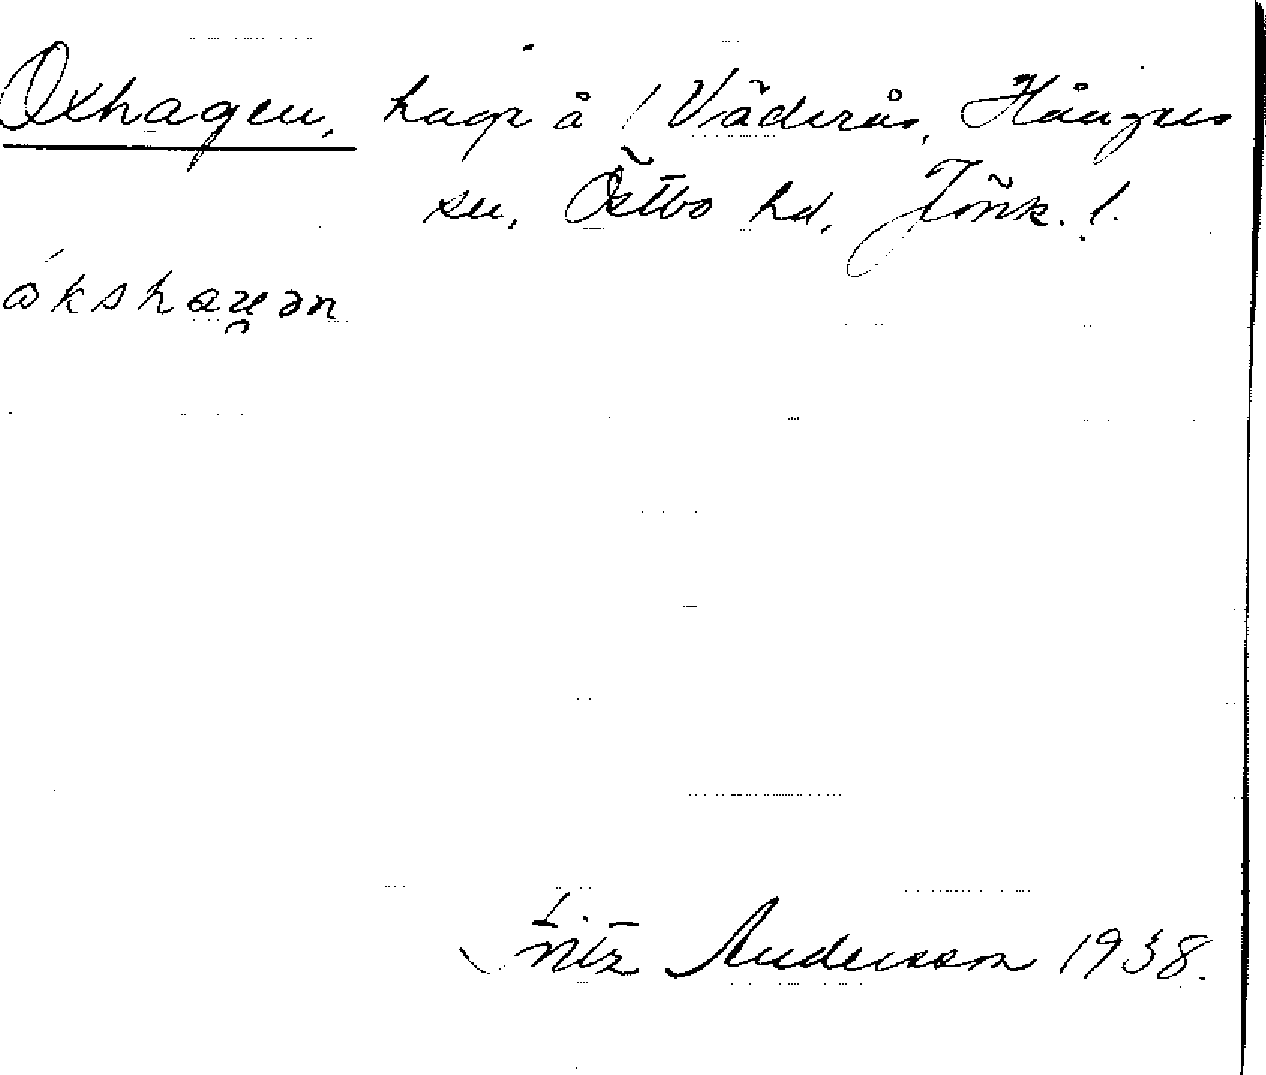 Oxhagen, hage å / Väderås, Hångers
sn, Östbo hd, Jönk. l.
ákshaɡən
Fritz Andersson 1938.